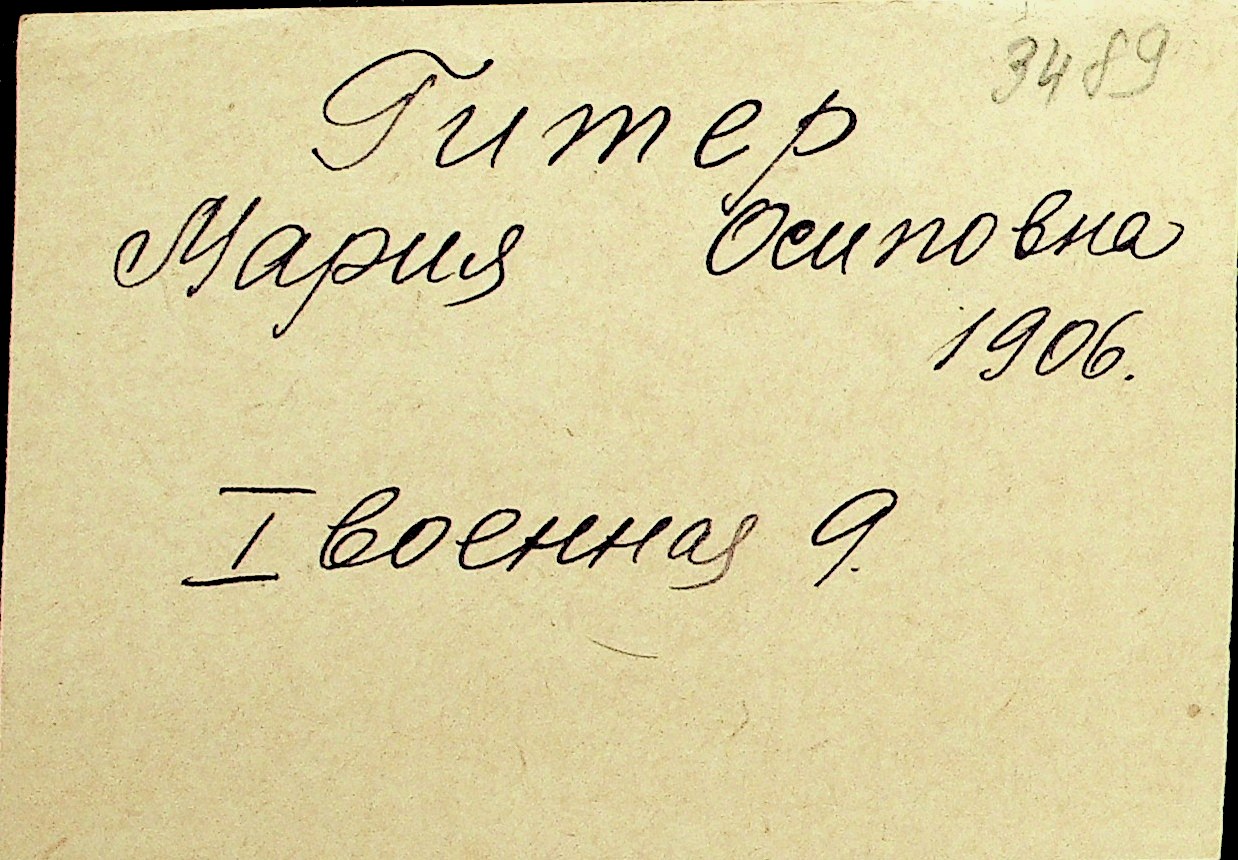 3489
Гитер
Мария Осиповна
1906.
I военная 9.